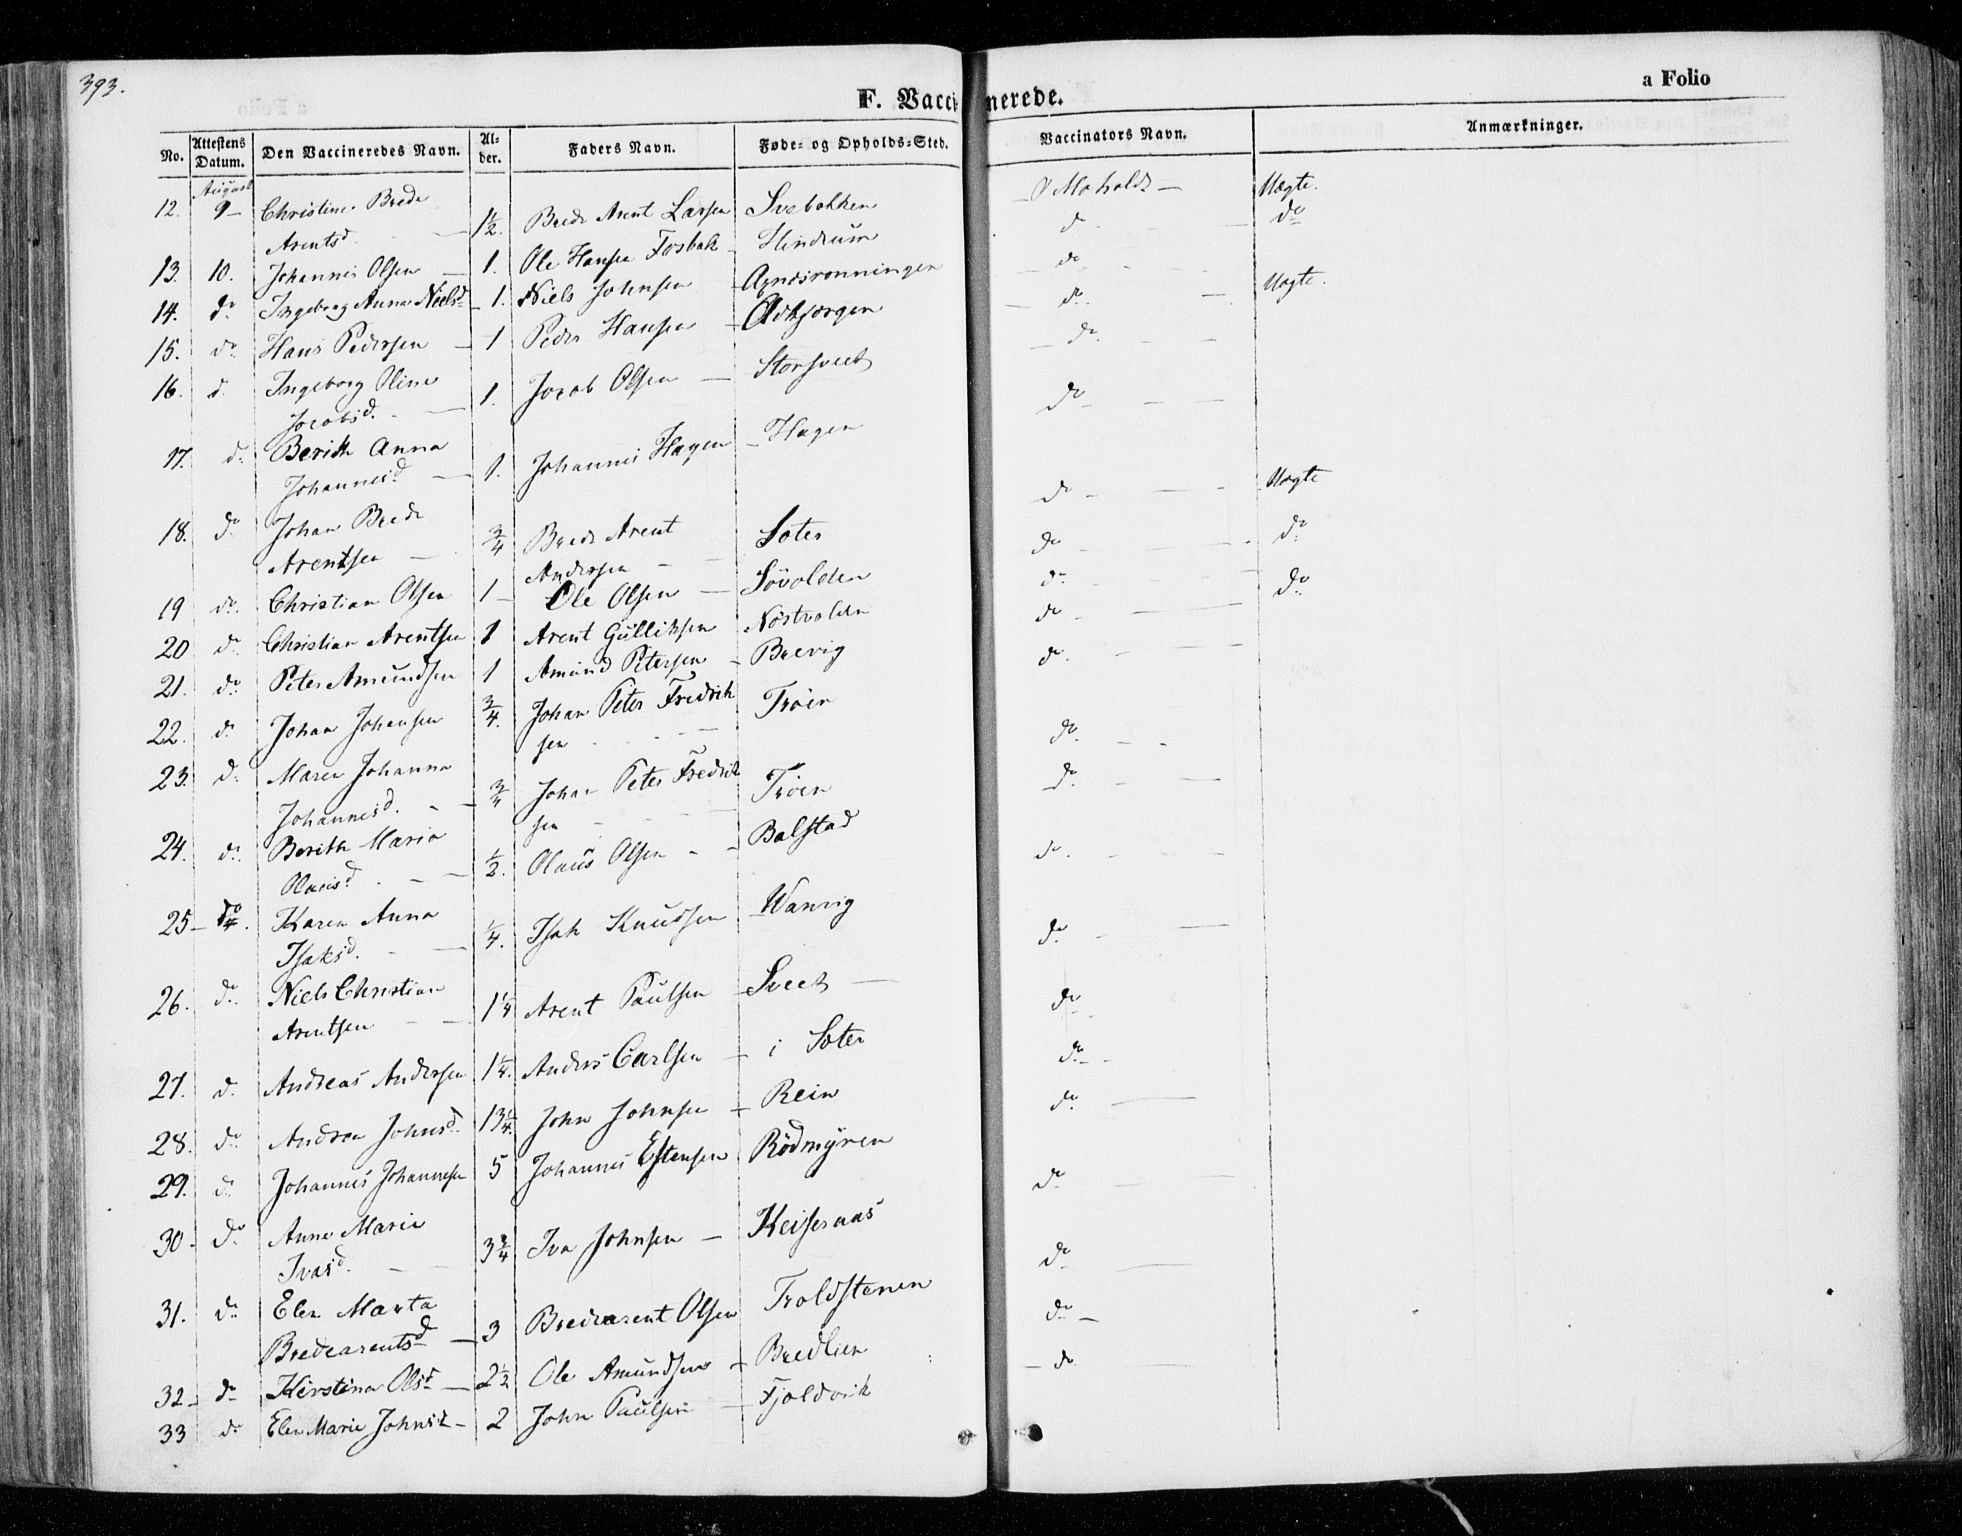 393.
a Folio
F. Vaccinerede.
No. Attestens Datum. Den Vaccineredes Navn. Alder. Faders Navn. Føde- og Opholds-Sted. Vaccinators Navn. Anmærkninger.
August
12. 9 – Christine Brede 1½ Brede Arent Larsen Svebakken Moholdt – Uægte.
Arentsd.
13. 10. Johannes Olsen – 1. Ole Hansen Fosbak – Hindrum do do
14. do Ingeborg Anna Nielsd – 1. Niels Johnsen Agnesrønningen do
15. do Hans Pedersen – 1 Peder Hansen do Uægte.
16. d. Ingeborg Oline 1. Jacob Olsen – Storsveet do
Jacobsd.
17. do Berith Anna 1. Johannes Hagen – Hagen do
Johannesd –
18. do Johan Brede ¾ Brede Arent Sæter do Uægte
Arentsen – Andersen –
19 do Christian Olsen 1 – Ole Olsen – Søvolden do do
20 do Christian Arentsen 1 Arent Gulliksen Nøstvolden do do
21. do Peter Amundsen 1 Amund Petersen – Brevig do
22. do Johan Johansen ¾. Johan Peter Fredrik Trøen do
sen
23. do Maren Johanna ¾ Johan Peter Fredrik Trøen do
Johannesd. sen
24. do Berith Maria ½. Olaus Olsen – – Balstad do
Olausd.
25 – do Karen Anna ¼. Isak Knudsen Wanvig do
Isaksd.
26. do Niels Christian 1¼ Arent Paulsen – Sveet – do
Arentsen
27. d. Andreas Andersen 1¼. Anders Carlsen – i Sæter do
28. do Andrea Johnsd. 13¼. John Johnsen – Rein do
29. do Johannes Johannesen 5 Johannes Estensen Rødmyren do
30 do Anne Marie 3¾ Iva Johnsen – Keiseraas do
Ivasd.
31. do Elen Marta 3 Bredearent Olsen Troldstenen do
Bredearentsd –
32 – do Kirstina Olsd – 2½ Ole Amundsen – Bredlien do –
33 do Elen Marie Johnsd – 2 John Paulsen – Fjoldvik – do